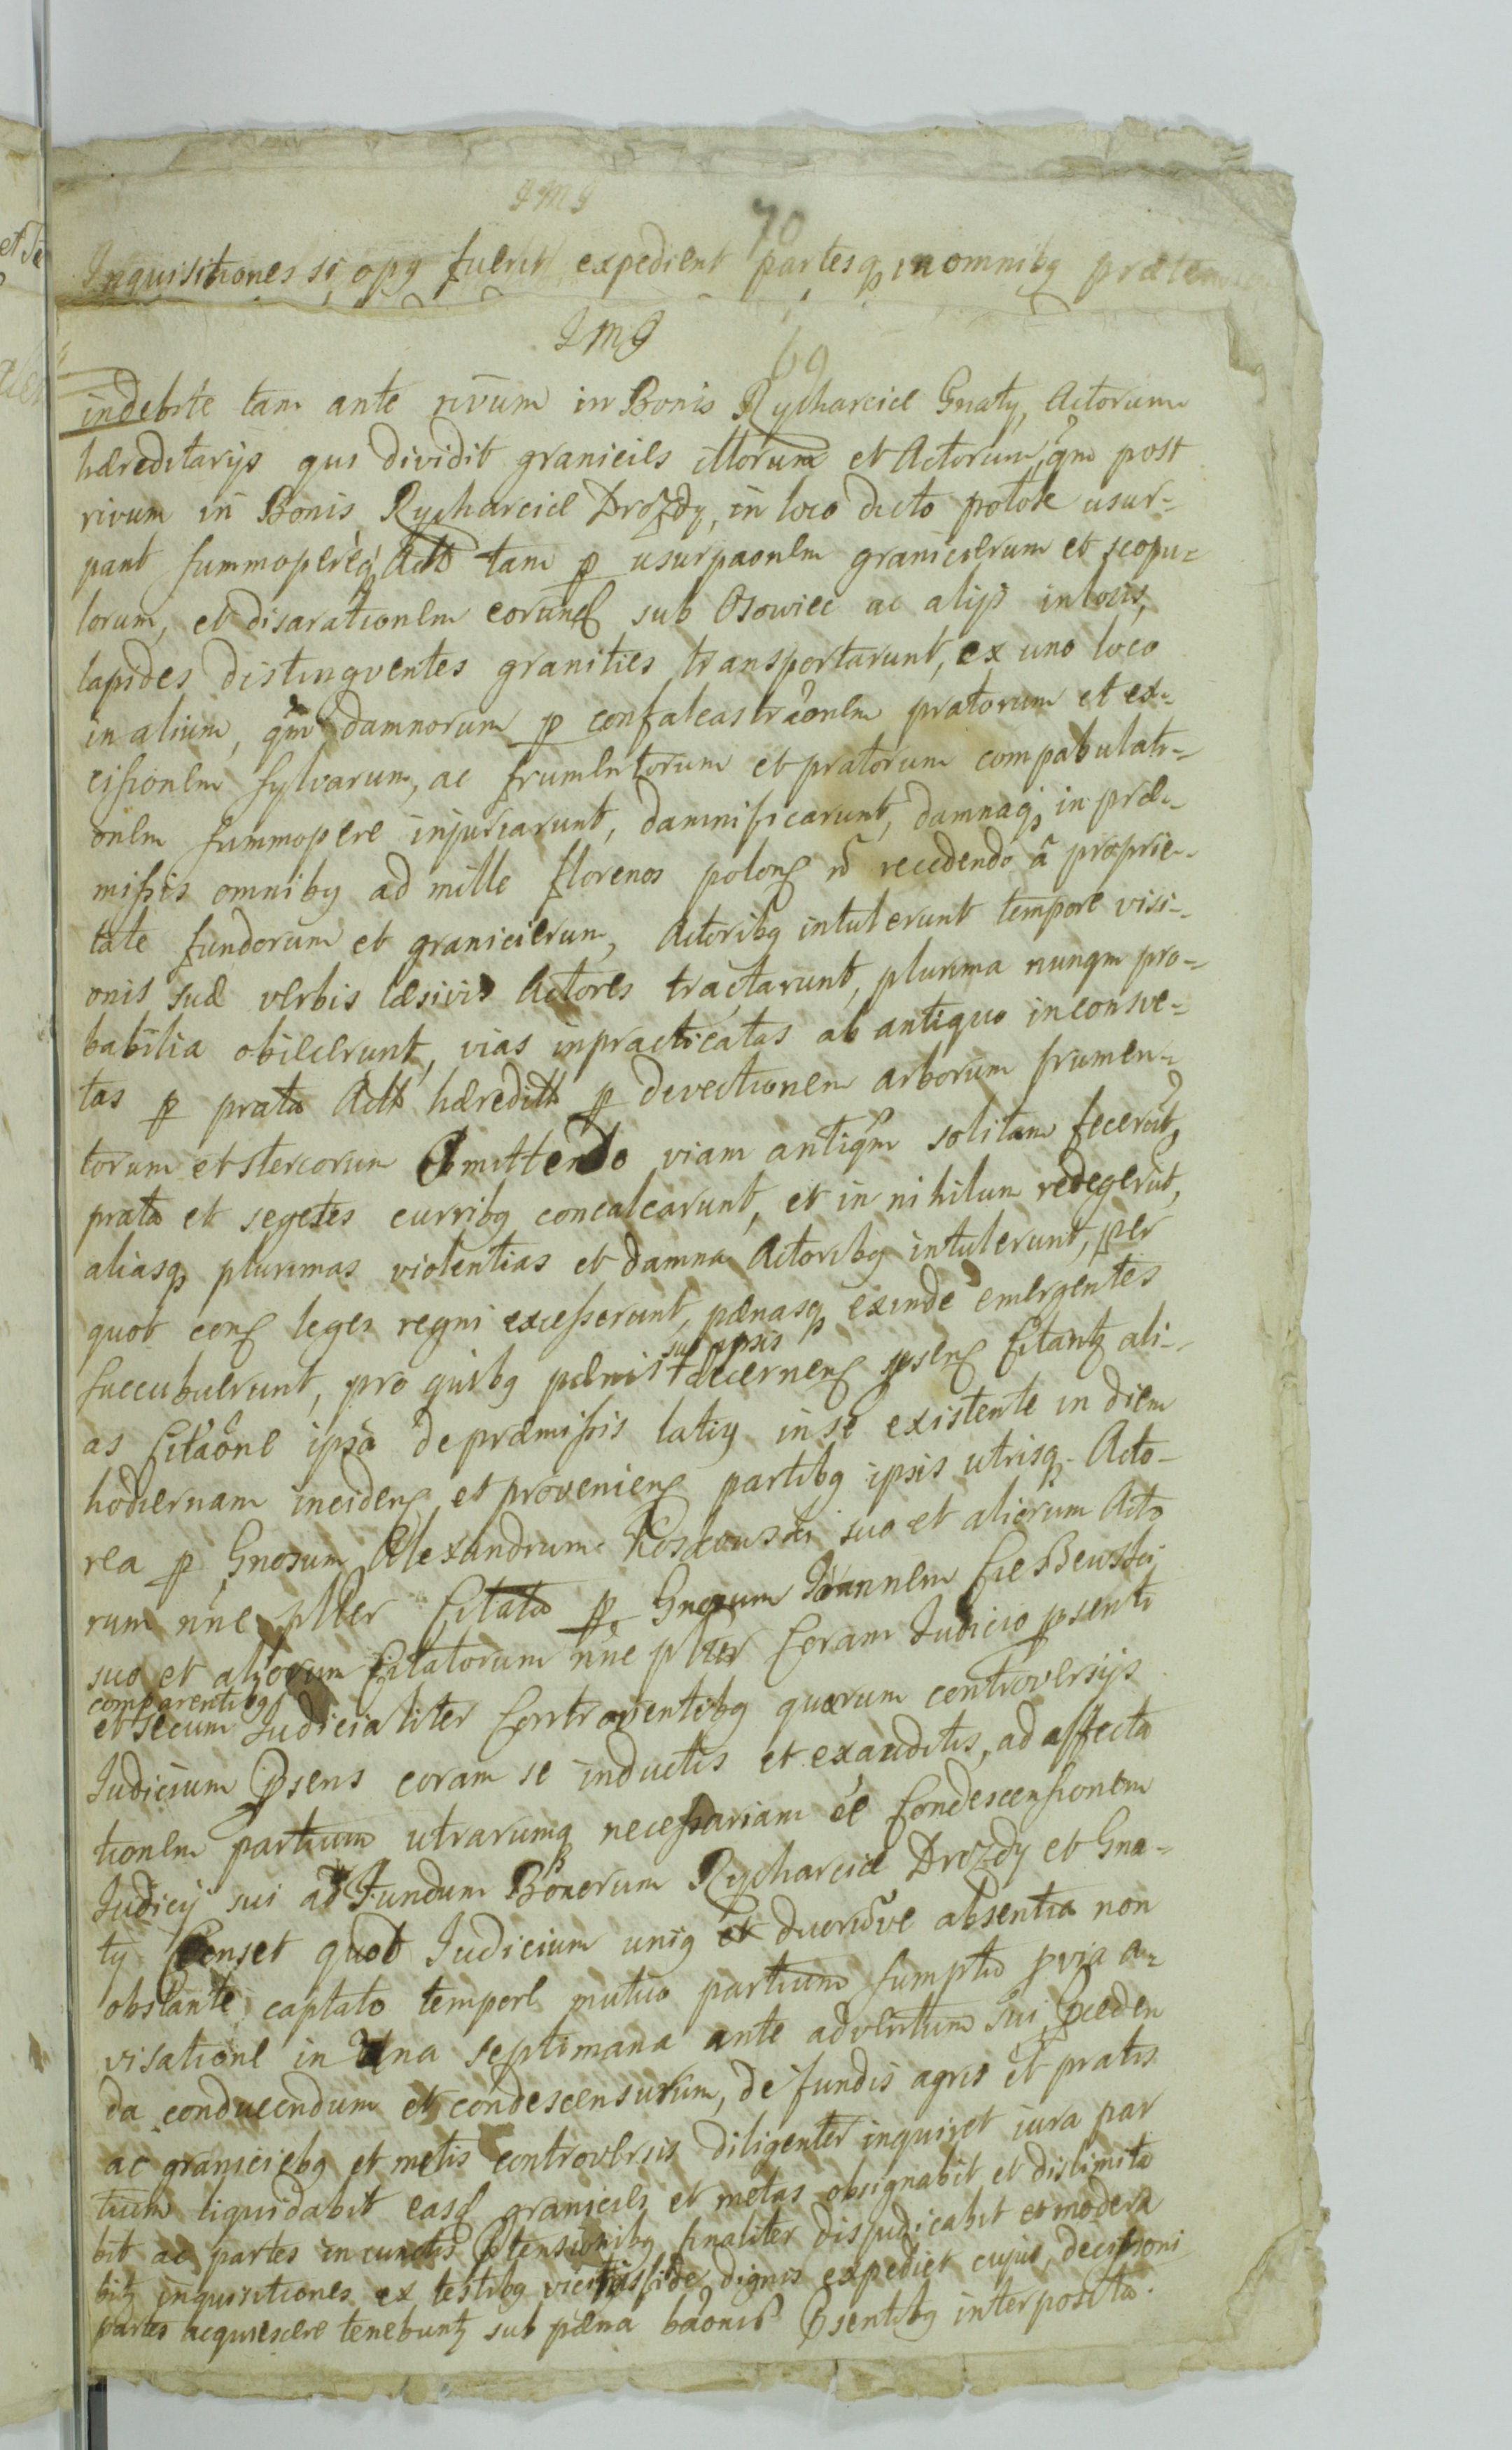 JMJ
70
Inquisitiones si opg fuerit expedient partesq in omnibg præten
JMJ
69
indebite tam ante rivum in Bonis Rycharcice Gnaty, Actorum
hæreditarijs qui dividit granicies illorum et Actorum, qm post
rivum in Bonis Rycharcice Drozdy, in loco dicto potok usur-
pant summopereq Actt tam p usurpaonem granicierum et scopu-
lorum, et disarationem eorund sub Osowiec ac alijs in locis,
lapides distingventes granities transportarunt, ex uno loco
in alium, qm damnorum p confalcastraonem pratorum et ex-
cissionem sylvarum, ac frumentorum et pratorum compabulati-
onem summopere injuriarunt, damnificarunt, damnaq in præ-
missis omnibg ad mille florenos polon n recedendo a proprie-
tate fundorum et granicierum, Actoribg intulerunt tempore visi-
onis suæ verbis læsivis Actores tractarunt, plurima nunqm pro-
babilia obiecerunt, vias inpracticatas ab antiquo inconsve-
tas p prata Actt hæreditt p devectionem arborum frumen-
torum et stercorum Obmittendo viam antiqm solitam fecerut,
prata et segetes curribg concalcarunt, et in nihilum redegerut,
aliasq plurimas violentias et damna Actoribg intulerunt, per
quot con leges regni excesserunt, pænasq exinde emergentes
succubuerunt, pro quibg pænis sup ipsis decernen psen Citantz ali-
as Citaone ipsa de præmissis latig in se existente in diem
hodiernam inciden et provenien partibg ipsis utrisq Acto-
rea p Gnosum Alexandrum Koskowski suo et aliorum Acto
rum nne plter Citata p Gnosum Joannem Cie Bewski
suo et aliorum Citatorum nne plter Coram Judicio psenti
comparentibg
et secum Judicialiter Controventibg quarum controversijs
Judicium Psens coram se inductis et exauditis, ad affecta
tionem partium utrarumq necessariam ee Condescensionem
Judicij sui ad Fundum Bonorum Rycharcice Drozdy et Gna-
ty Censet quod Judicium unig et duorumve absentia non
obstante captato tempore mutuo partium sumptu pvia a-
visatione in Una septimana ante adventum sui Præceden
da conducendum et condescensurum, de fundis agris et pratis
ac graniciebg et metis controversis diligenter inquiret iura par
tium liquidabit easd granicies et metas obsignabit et dislimita
bit ac partes in cunctis Ptensionibg finaliter disjudicabit et modera
bit inquisitiones ex testibg vicinis fide dignis expediet cujus decissoni
partes acquiescere tenebuntz sub pæna baonis Psentibg interposita.